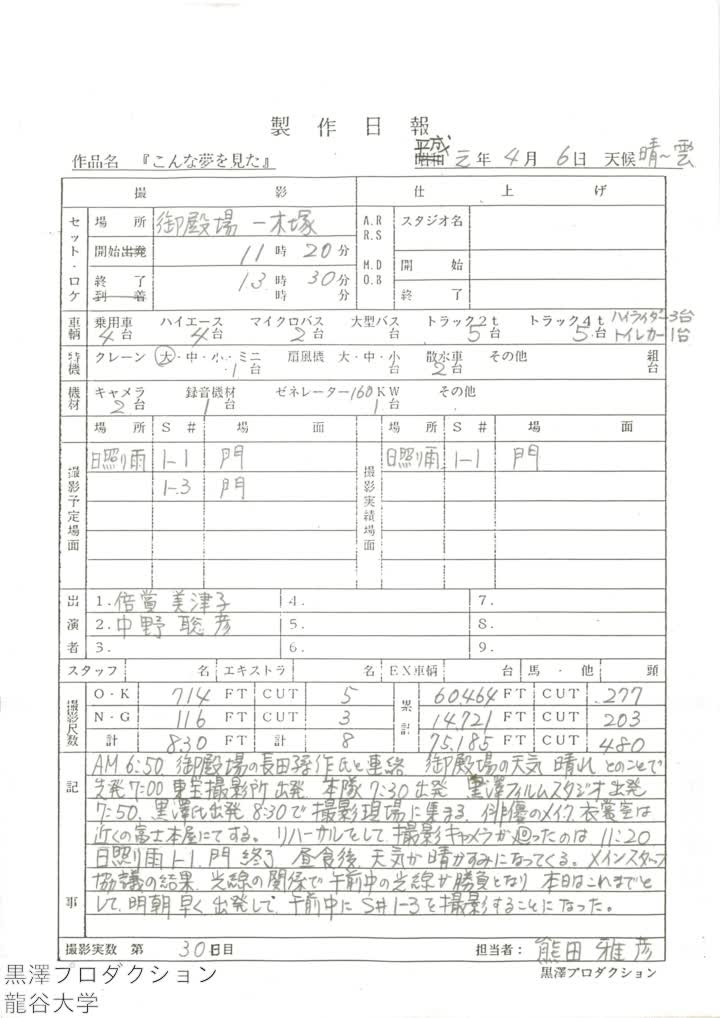 製作日報
作品名 『こんな夢を見た』 平成元年4月6日 天候 晴〜雲
撮影 仕上げ
セット・ロケ 場所 御殿場 一本塚 A.R R.S M.D O.B スタジオ名
開始出発 11時20分 開始
終了到着 13時30分 終了
時 分
車輌 乗用車4台 ハイエース4台 マイクロバス2台 大型バス 台 トラック2t 5台 トラック4t 5台 ハイライダー3台
トイレカー1台
特機 クレーン 大・中・小・ミニ 1台 扇風機 大・中・小 台 散水車2台 その他 組台
機材 キャメラ2台 録音機材1台 ゼネレーター160KW 1台 その他
撮影予定場面 場所 S# 場面 撮影実績場面 場所 S# 場面
日照り雨 1-1 門 日照り雨 1-1 門
1-3 門
出演者 1.倍賞 美津子 4. 7.
2.中野 聡彦 5. 8.
3. 6. 9.
スタッフ 名 エキストラ 名 EX車輌 台 馬・他 頭
撮影尺数 O・K 714 FT CUT 5 累計 60.464 FT CUT 277
N・G 116 FT CUT 3 14.721 FT CUT 203
計 830 FT 計 8 75.185 FT CUT 480
記事 AM 6:50. 御殿場の長田孝作氏と連絡 御殿場の天気 晴れ とのことで
先発 7:00 東宝撮影所 出発 本隊 7:30 出発 黒澤フィルムスタジオ出発
7:50. 黒澤氏出発 8:30で撮影現場に集まる. 俳優のメイク 衣裳室は
近くの富士本屋にてする。 リハーサルをして 撮影キャメラが廻ったのは 11:20
日照り雨 1-1. 門 終了 昼食後 天気が晴かすみになってくる。 メインスタッフ
協議の結果 光線の関係で午前中の光線が勝負となり 本日はこれまでと
して. 明朝 早く出発して 午前中に S#1-3を撮影することになった。
撮影実数 第 30日目 担当者: 熊田 雅彦
黒澤プロダクション
黒澤プロダクション
龍谷大学